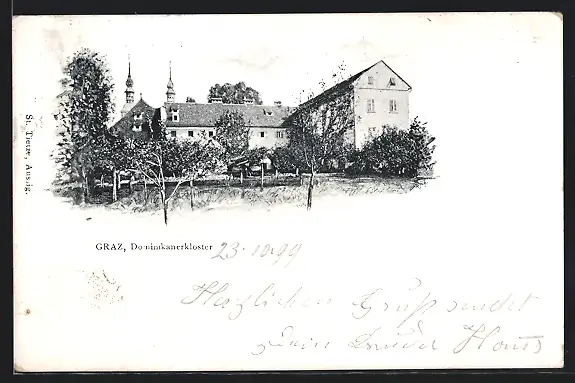 St. Tietze, Aussig.
GRAZ, Dominikanerkloster 23.10.99
Herzlichen Gruß sendet
Dein Bruder Hans